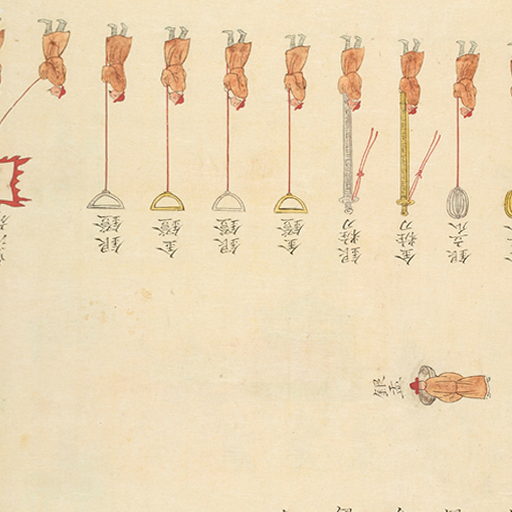 銀鐙
金鐙
銀鐙
金鐙
銀粧刀
金粧刀
銀立瓜
銀盂